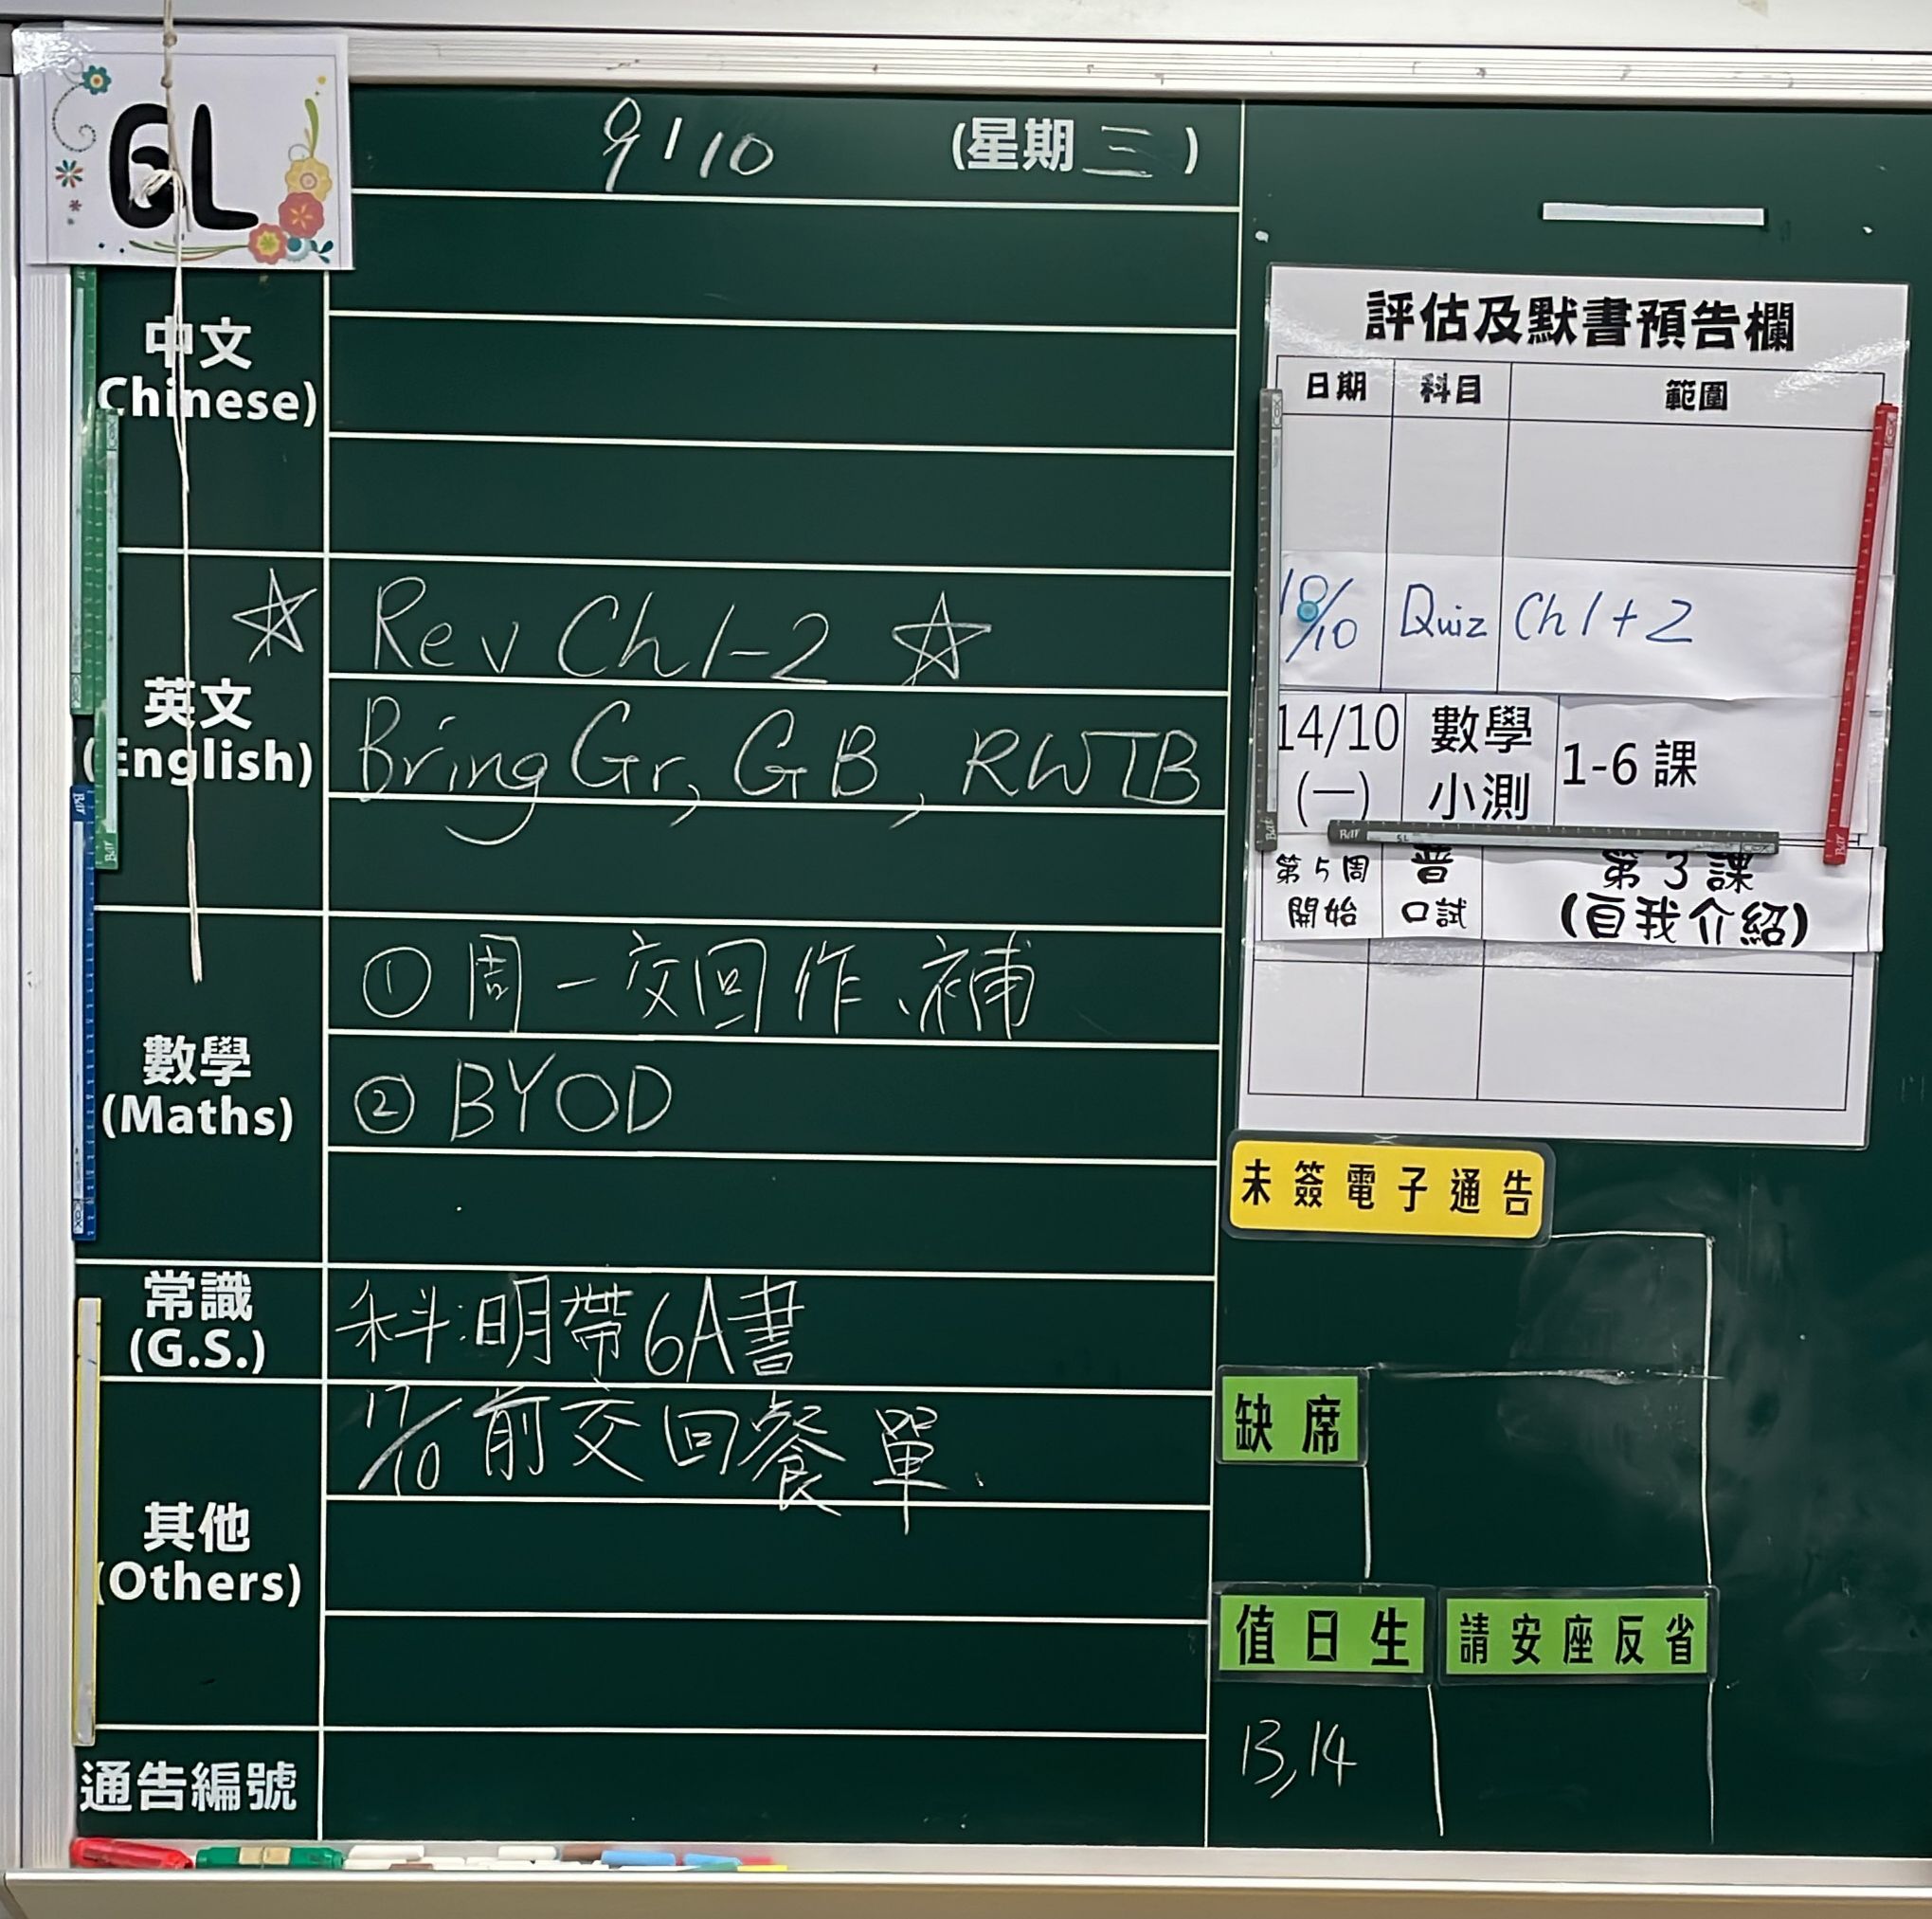 6L
9/10 (星期三)
中文
(Chinese)
英文
(English)
☆ Rev Ch 1-2 ☆
Bring Gr, GB, RWTB
數學
(Maths)
① 周一交回作、補
② BYOD
常識
(G.S.)
科:明帶6A書
其他
(Others)
17/10 前交回餐單.
通告編號
評估及默書預告欄
日期 科目 範圍
10/10 Quiz Ch 1+2
14/10 (一) 數學小測 1-6 課
第5周開始 普口試 第3課(自我介紹)
未簽電子通告
缺席
值日生 請安座反省
13,14